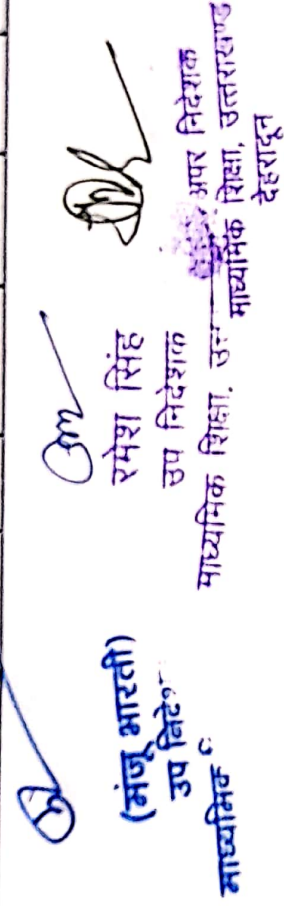 (मंजू भारती)
उप निदे
माध्यमिक
रमेश सिंह
उप निदेशक
माध्यमिक शिक्षा, उ
अपर निदेशक
माध्यमिक शिक्षा, उत्तराखण्ड
देहरादून